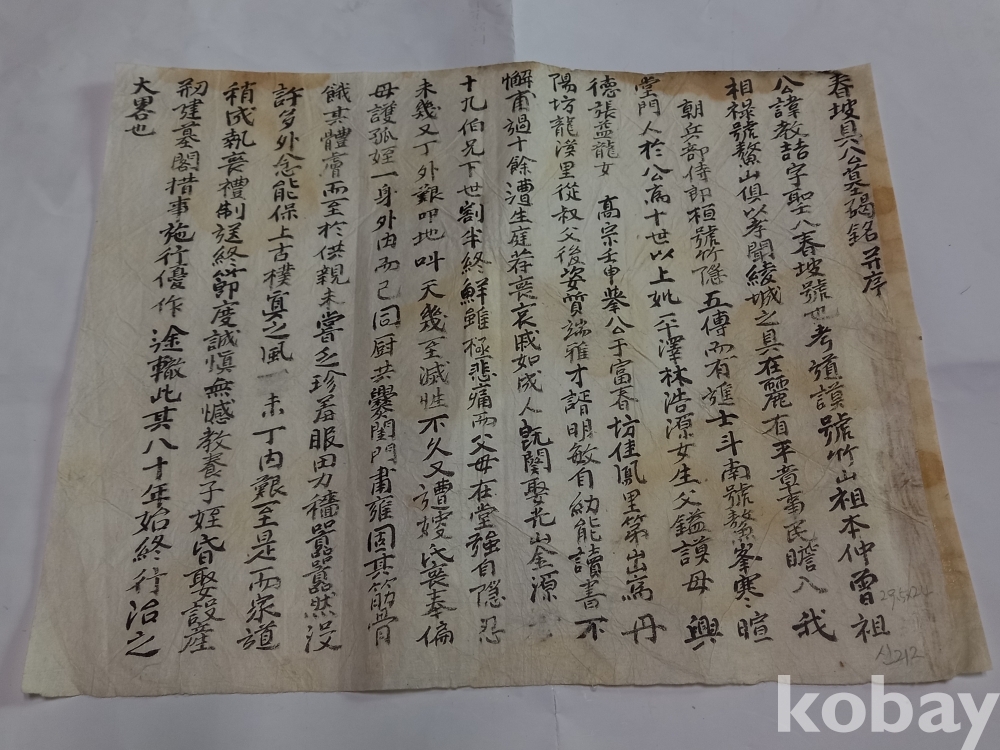 春坡具公墓碣銘 并序
公諱教喆字聖八春坡號也考道謨號竹山祖本仲曾祖
相祿號鰲山俱以孝聞綾城之具在麗有平章事民瞻入 我
朝兵部侍郎桓號竹隱五傳而有進士斗南號鰲峯寒暄
堂門人於公爲十世以上妣平澤林浩源女生父鎰謨母 興
德張益龍女 高宗壬申擧公于富春坊佳鳳里第出爲 丹
陽坊龍漢里從叔父後姿質端雅才諝明敏自幼能讀書不
懈甫過十餘遭生庭荐喪哀戚如成人旣闋娶光山金源
十九伯兄下世割半終鮮雖極悲痛而父母在堂強自隱忍
未幾又丁外艱叩地叫天幾至滅性不久又遭嫂氏喪奉偏
母護孤姪一身外內而已同厨共爨閨門肅雍固其筋骨
餓其體膚而至於供親未嘗乏珍羞服田力穡囂囂然沒
許多外念能保上古樸眞之風 未丁內艱至是而家道
稍成執喪禮制送終節度誠愼無憾教養子姪昏娶設產
刱建墓閣措事施行優作 途轍此其八十年始終行治之
大畧也
29.5x22.2
신212
kobay